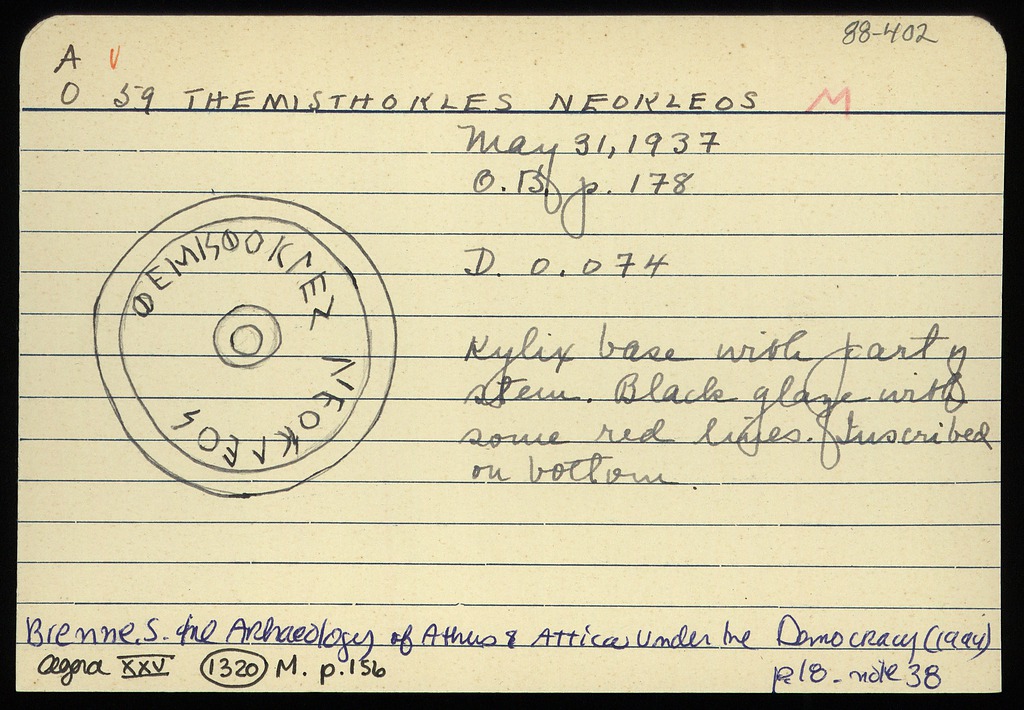 88-402
A V
O 59 THEMISTHOKLES NEOKLEOS M
May 31, 1937
O.B. p. 178
D. 0.074
ΘΕΜΙSΘΟΚΛΕΣ ΝΕΟΚΛΕΟS
Kylix base with part of
stem. Black glaze with
some red lines. Inscribed
on bottom.
Brenne, S. The Archaeology of Athens & Attica Under the Democracy (1994)
p. 18 - note 38
Agora XXV 1320 M. p. 156